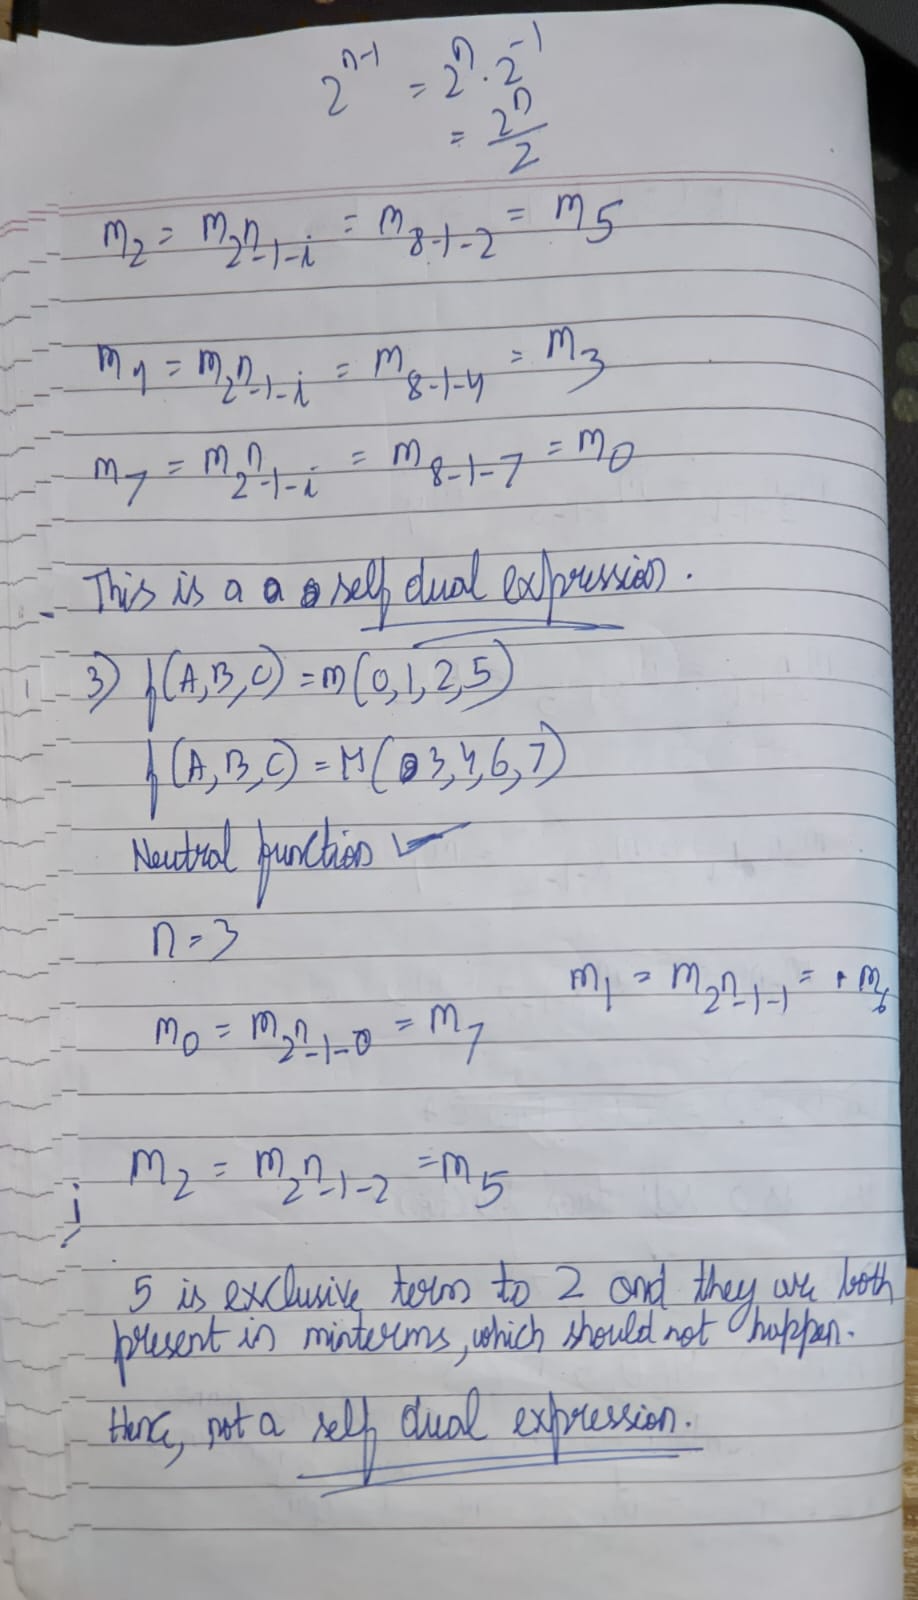 2^{n-1} = 2^n . 2^{-1}
= 2^n/2
m_2 = m_{2^n-1-i} = m_{8-1-2} = m_5
m_4 = m_{2^n-1-i} = m_{8-1-4} = m_3
m_7 = m_{2^n-1-i} = m_{8-1-7} = m_0
This is a a self dual expression.
3) f(A,B,C) = m(0,1,2,5)
f(A,B,C) = M(3,4,6,7)
Neutral function ✓
n = 3
m_1 = m_{2^n-1-1} = m_6
m_0 = m_{2^n-1-0} = m_7
m_2 = m_{2^n-1-2} = m_5
5 is exclusive term to 2 and they are both
present in minterms, which should not happen.
Hence, not a self dual expression.